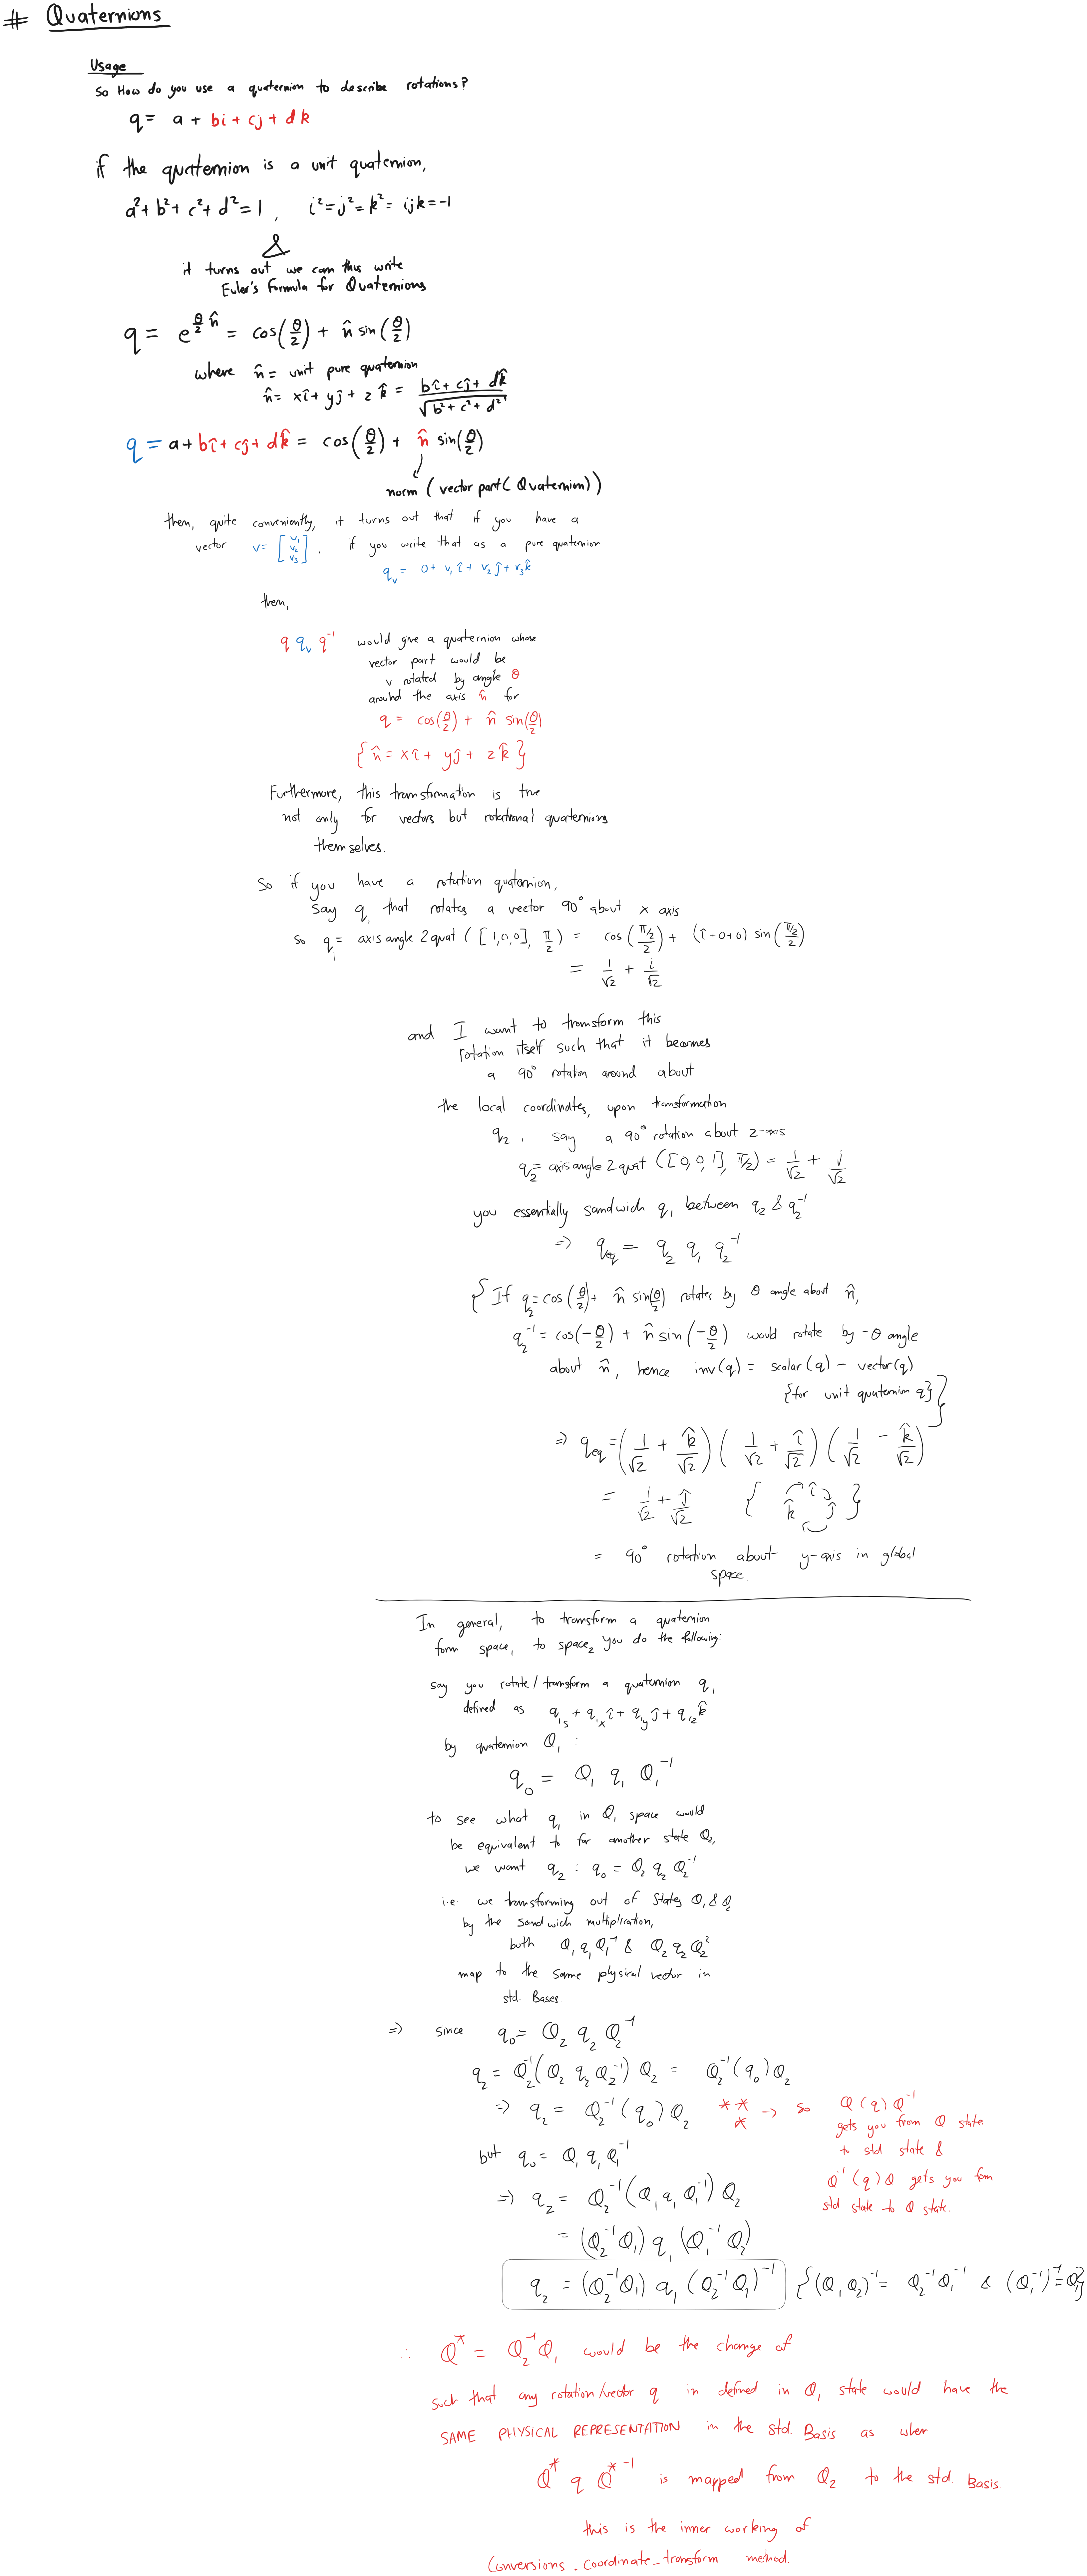 # Quaternions
Usage
So How do you use a quaternion to describe rotations?
q = a + bi + cj + dk
if the quaternion is a unit quaternion,
a² + b² + c² + d² = 1 , i² = j² = k² = ijk = -1
&
it turns out we can thus write
Euler's Formula for Quaternions
q = e^(θ/2 n̂) = cos(θ/2) + n̂ sin(θ/2)
where n̂ = unit pure quaternion
n̂ = xî + yĵ + zk̂ = (bî + cĵ + dk̂) / √(b² + c² + d²)
q = a + bî + cĵ + dk̂ = cos(θ/2) + n̂ sin(θ/2)
norm (vector part (Quaternion))
then, quite conveniently, it turns out that if you have a
vector v = [v₁ v₂ v₃] , if you write that as a pure quaternion
q_v = 0 + v₁î + v₂ĵ + v₃k̂
then,
q q_v q⁻¹ would give a quaternion whose
vector part would be
v rotated by angle θ
around the axis n̂ for
q = cos(θ/2) + n̂ sin(θ/2)
{n̂ = xî + yĵ + zk̂}
Furthermore, this transformation is true
not only for vectors but rotational quaternions
themselves.
So if you have a rotation quaternion,
say q₁ that rotates a vector 90° about x axis
so q₁ = axisangle2quat([1,0,0], π/2) = cos((π/2)/2) + (î+0+0) sin((π/2)/2)
= 1/√2 + i/√2
and I want to transform this
rotation itself such that it becomes
a 90° rotation around about
the local coordinates, upon transformation
q₂ , say a 90° rotation about z-axis
q₂ = axisangle2quat([0,0,1], π/2) = 1/√2 + j/√2
you essentially sandwich q₁ between q₂ & q₂⁻¹
⇒ q_eq = q₂ q₁ q₂⁻¹
{If q₂ = cos(θ/2) + n̂ sin(θ/2) rotates by θ angle about n̂,
q₂⁻¹ = cos(-θ/2) + n̂ sin(-θ/2) would rotate by -θ angle
about n̂, hence inv(q) = scalar(q) - vector(q)
{for unit quaternion q}}
⇒ q_eq = (1/√2 + k̂/√2) (1/√2 + î/√2) (1/√2 - k̂/√2)
= 1/√2 + ĵ/√2 { î ĵ k̂ }
= 90° rotation about y-axis in global
space.
In general, to transform a quaternion
form space₁ to space₂ you do the following:
say you rotate/transform a quaternion q₁
defined as q₁s + q₁x î + q₁y ĵ + q₁z k̂
by quaternion Q₁ :
q₀ = Q₁ q₁ Q₁⁻¹
to see what q₁ in Q₁ space would
be equivalent to for another state Q₂,
we want q₂ : q₀ = Q₂ q₂ Q₂⁻¹
i.e. we transforming out of states Q₁ & Q₂
by the sandwich multiplication,
both Q₁ q₁ Q₁⁻¹ & Q₂ q₂ Q₂²
map to the same physical vector in
std. Bases.
⇒ since q₀ = Q₂ q₂ Q₂⁻¹
q₂ = Q₂⁻¹(Q₂ q₂ Q₂⁻¹) Q₂ = Q₂⁻¹(q₀) Q₂
⇒ q₂ = Q₂⁻¹(q₀) Q₂ *** → so Q(q)Q⁻¹
gets you from Q state
to std state &
Q⁻¹(q)Q gets you form
std state to Q state.
but q₀ = Q₁ q₁ Q₁⁻¹
⇒ q₂ = Q₂⁻¹(Q₁ q₁ Q₁⁻¹) Q₂
= (Q₂⁻¹Q₁) q₁ (Q₁⁻¹Q₂)
q₂ = (Q₂⁻¹Q₁) q₁ (Q₂⁻¹Q₁)⁻¹ {(Q₁Q₂)⁻¹ = Q₂⁻¹Q₁⁻¹ & (Q₁⁻¹)⁻¹ = Q₁}
∴ Q* = Q₂⁻¹Q₁ would be the change of
such that any rotation/vector q in defined in Q₁ state would have the
SAME PHYSICAL REPRESENTATION in the std. Basis as when
Q* q Q*⁻¹ is mapped from Q₂ to the std. Basis.
this is the inner working of
Conversions.coordinate_transform method.